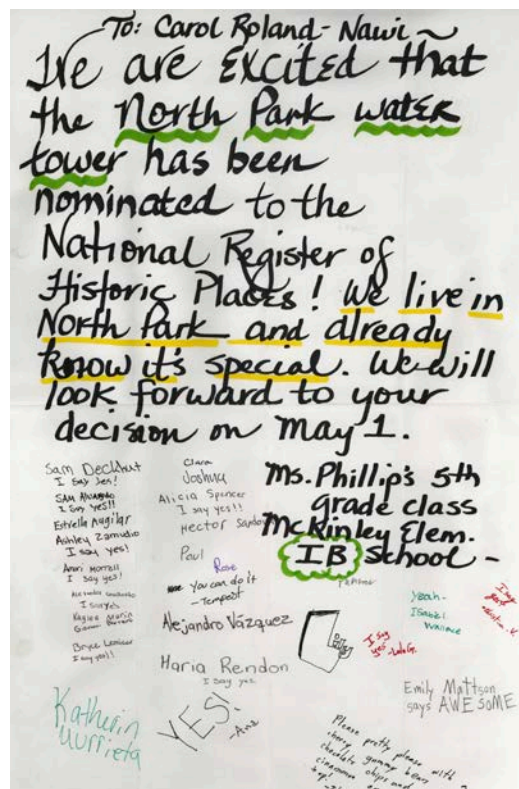 To: Carol Roland-Nawi
We are excited that
the North Park water
tower has been
nominated to the
National Register of
Historic Places! We live in
North Park and already
know it's special. We will
look forward to your
decision on May 1.
Ms. Phillip's 5th
grade class
McKinley Elem.
IB School -
Sam Deckhut
I say yes!
SAM
I say yes!!
Estrella Aguilar
Ashley Zamudio
I say yes!
Morrell
I say yes!
I say yes
Kaylea Marin
Bryce
I say yes!!
Katherin
Urrieta
Clara
Joshua
Alicia Spencer
I say yes!!
Hector Sandoval
Paul
Rose
You can do it
- Tempest
Alejandro Vázquez
Maria Rendon
I say yes.
YES!
- Ana
I say
yes
Yeah -
Isabel
Wallace
Emily Mattson
says AWESOME
Please pretty please with
cherry, gummy bears
chocolate chips and
cinnamon
top!